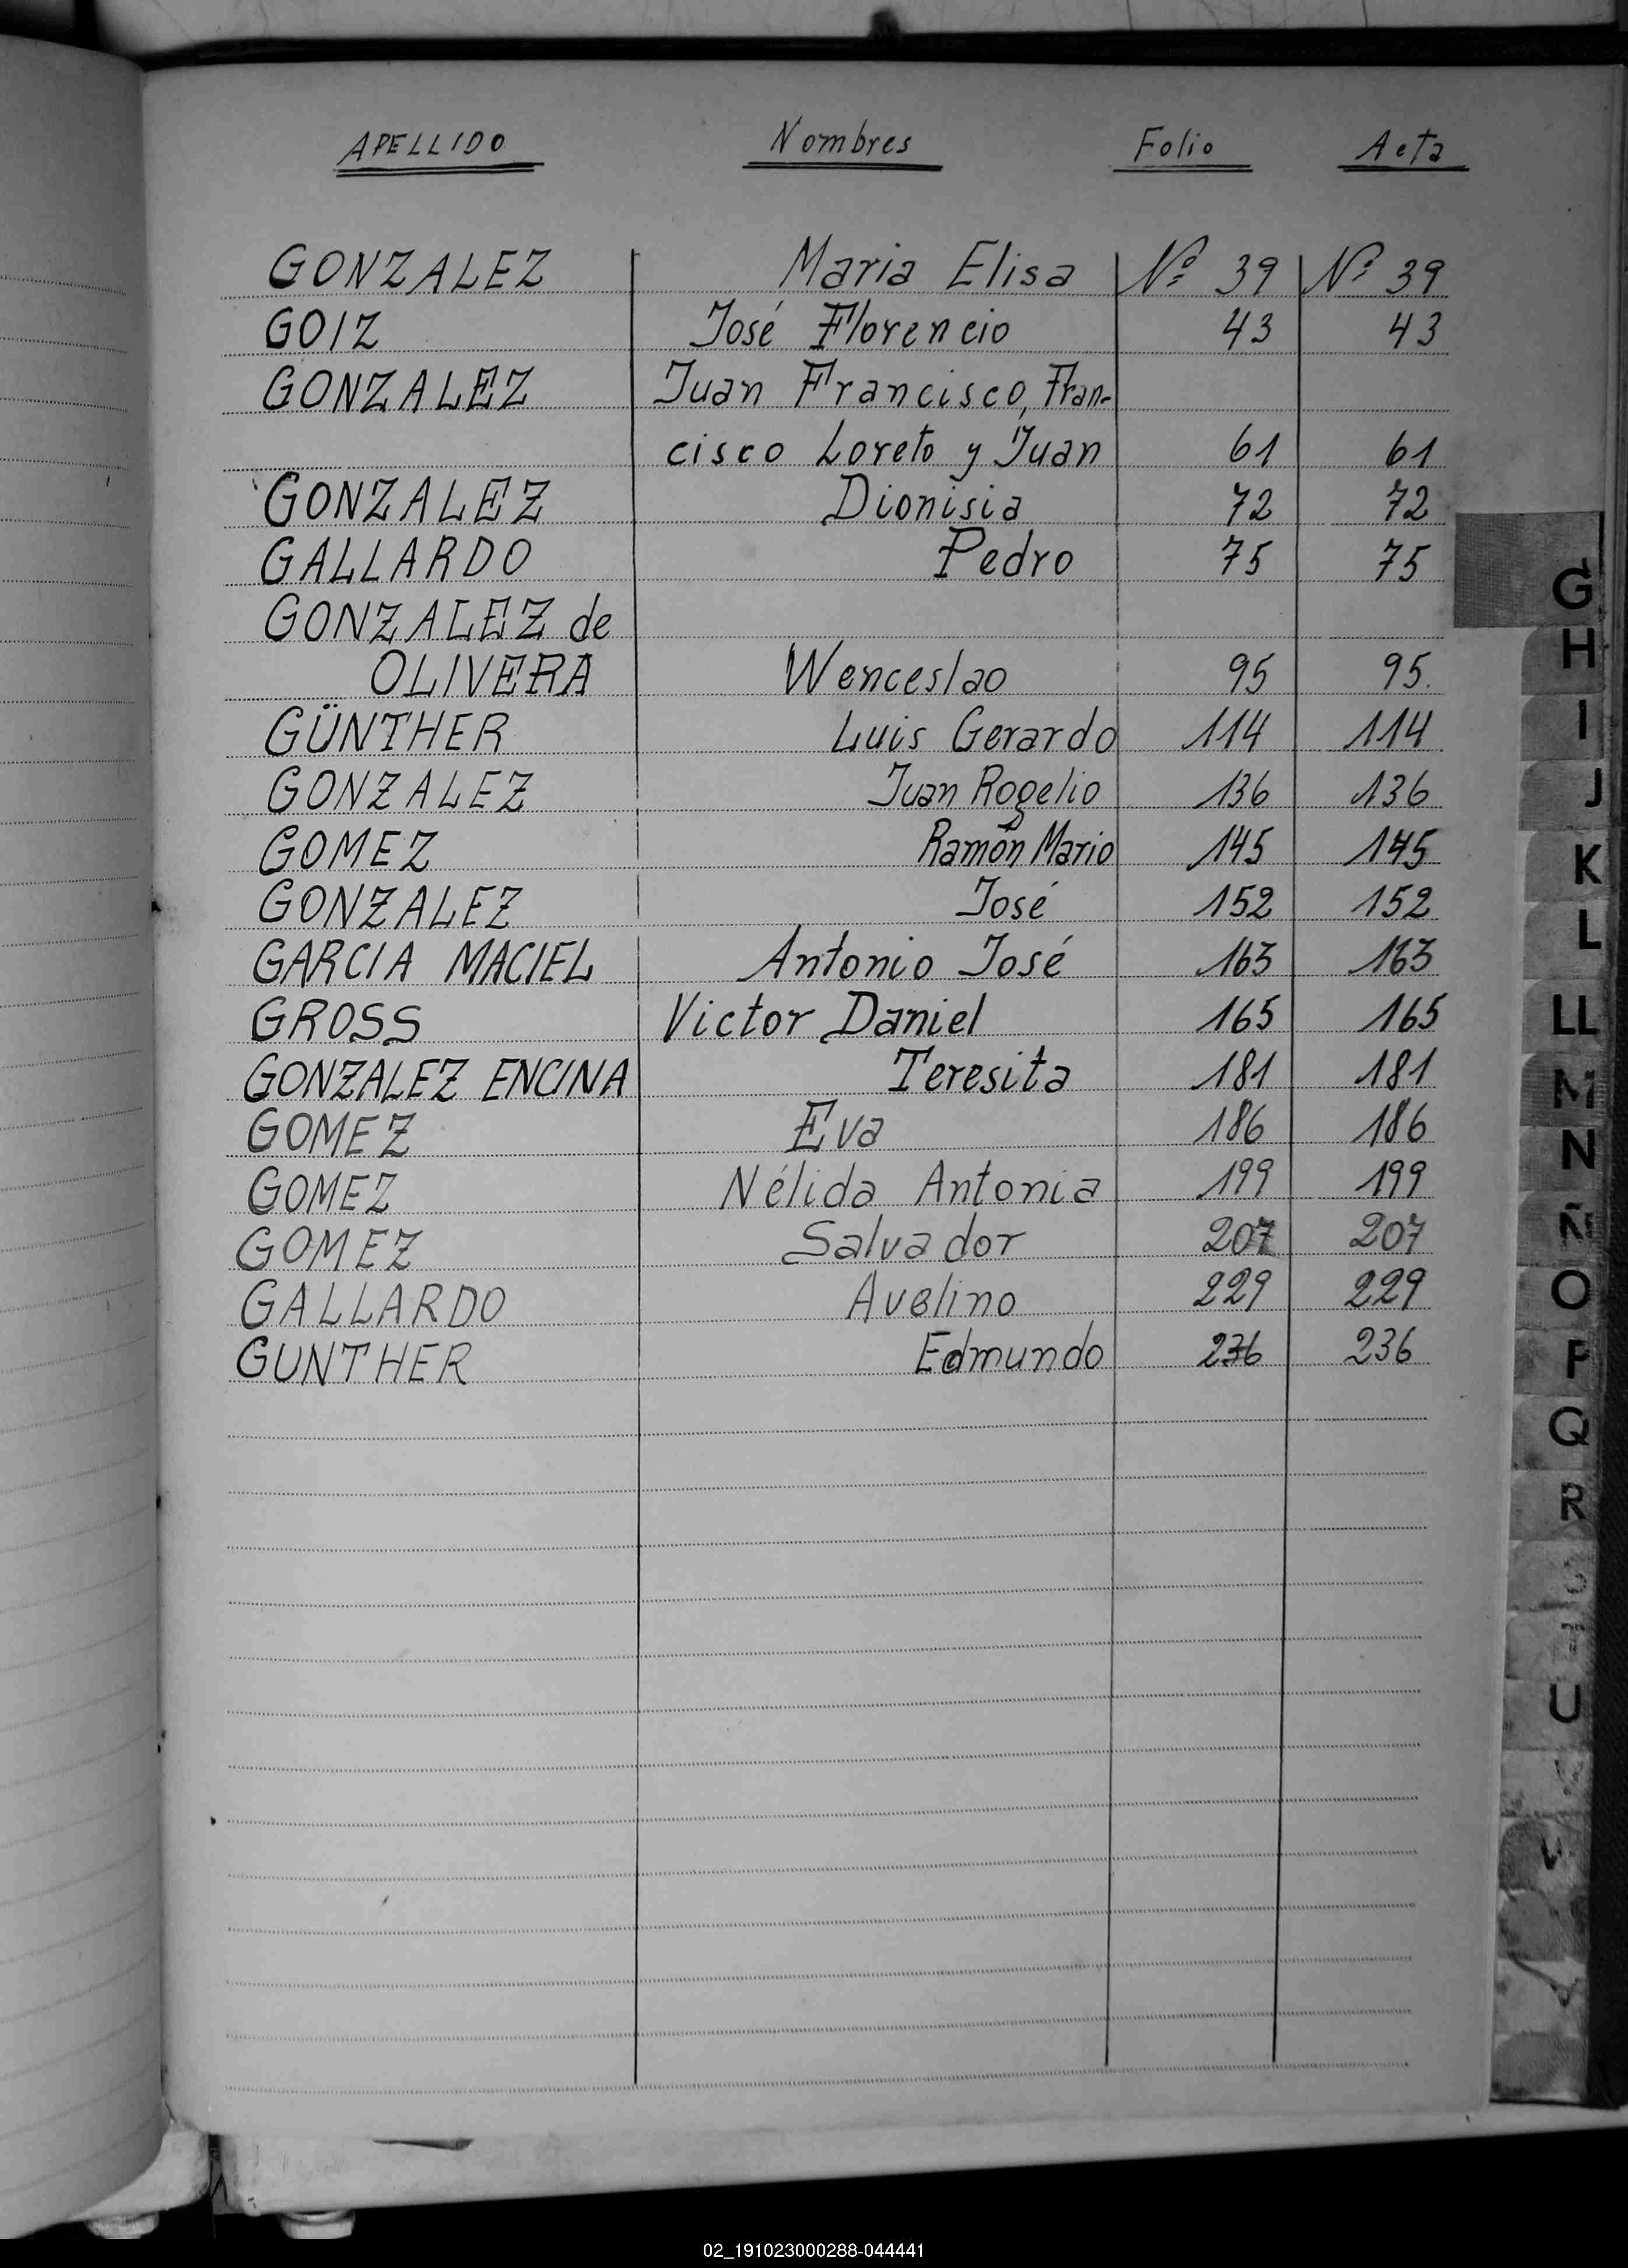 APELLIDO Nombres Folio Acta
GONZALEZ Maria Elisa Nº 39 Nº 39
GOIZ José Florencio 43 43
GONZALEZ Juan Francisco, Fran-
cisco Loreto y Juan 61 61
GONZALEZ Dionisia 72 72
GALLARDO Pedro 75 75
GONZALEZ de
OLIVERA Wenceslao 95 95.
GÜNTHER Luis Gerardo 114 114
GONZALEZ Juan Rogelio 136 136
GOMEZ Ramón Mario 145 145
GONZALEZ José 152 152
GARCIA MACIEL Antonio José 163 163
GROSS Victor Daniel 165 165
GONZALEZ ENCINA Teresita 181 181
GOMEZ Eva 186 186
GOMEZ Nélida Antonia 199 199
GOMEZ Salvador 207 207
GALLARDO Avelino 229 229
GUNTHER Edmundo 236 236
G
H
I
J
K
L
LL
M
N
Ñ
O
P
Q
R
U
V
02_191023000288-044441